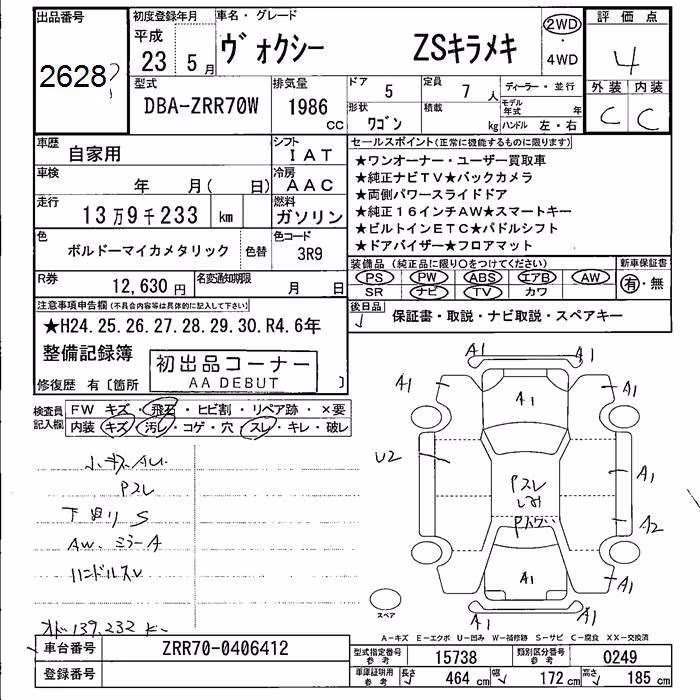 出品番号
2628
初度登録年月
平成
23 5月
車名・グレード
ヴォクシー ZSキラメキ
2WD
・
4WD
評価点
4
外装 内装
C C
型式
DBA-ZRR70W
排気量
1986
CC
ドア
5
定員
7人
ディーラー・並行
形状
ワゴン
積載
kg
モデル年式 年
ハンドル 左・右
車歴
自家用
シフト
IAT
車検
年 月( 日)
冷房
AAC
走行
13万9千233 km
燃料
ガソリン
色
ボルドーマイカメタリック
色替
色コード
3R9
R券
12,630円
名変通知期限
月 日
セールスポイント(正常に機能するものに限ります)
★ワンオーナー・ユーザー買取車
★純正ナビTV★バックカメラ
★両側パワースライドドア
★純正16インチAW★スマートキー
★ビルトインETC★パドルシフト
★ドアバイザー★フロアマット
装備品(純正品に限り○をつけてください)
PS PW ABS エアB AW
SR ナビ TV カワ
新車保証書
有・無
後日品
保証書・取説・ナビ取説・スペアキー
注意事項申告欄(不具合内容等は具体的に記入して下さい)
★H24.25.26.27.28.29.30.R4.6年
整備記録簿
初出品コーナー
AA DEBUT
修復歴 有〔箇所 〕
検査員記入欄
FW キズ・飛石・ヒビ割・リペア跡・×要
内装 キズ・汚レ・コゲ・穴・スレ・キレ・破レ
小キズAU
Pスレ
下廻りS
AW.ミラーA
ハンドルスレ
オド139,232K
A1 A1
A1 A1
A1
U2
Pスレ
シミ
A1
A2
A1
A1
A1 A1
スペア
A-キズ E-エクボ U-凹み W-補修跡 S-サビ C-腐食 XX-交換済
車台番号
ZRR70-0406412
登録番号
型式指定番号 参考
15738
類別区分番号 参考
0249
車庫証明用 参考
長さ 464cm
幅 172cm
高さ 185cm